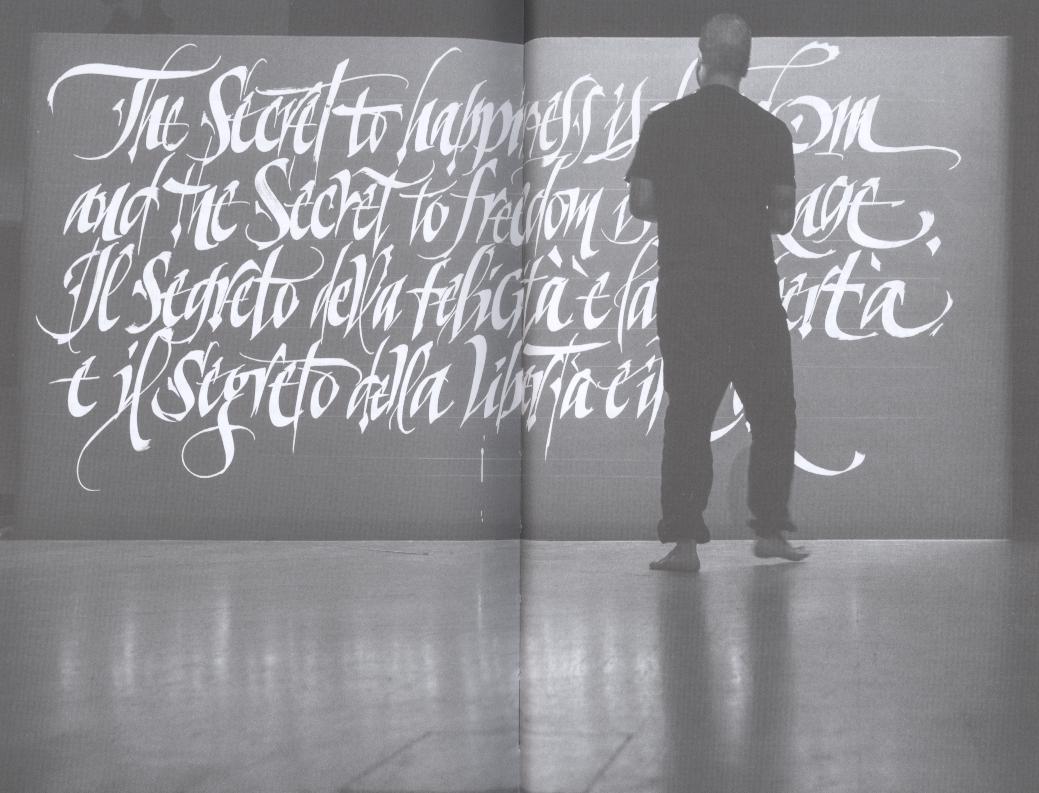 The Secret to happiness is
and the Secret to freedom
Il Segreto della felicità è la
e il Segreto della libertà è il